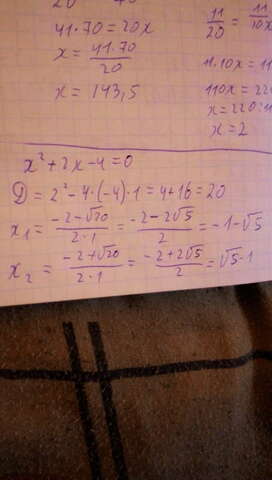 41·70=20x
x = 41·70/20
x = 143,5
11/20 = 11/10x
11·10x=11
110x=220
x=220:1
x=2
x²+2x-4=0
D=2²-4·(-4)·1=4+16=20
x₁ = (-2-√20)/(2·1) = (-2-2√5)/2 = -1-√5
x₂ = (-2+√20)/(2·1) = (-2+2√5)/2 = √5-1